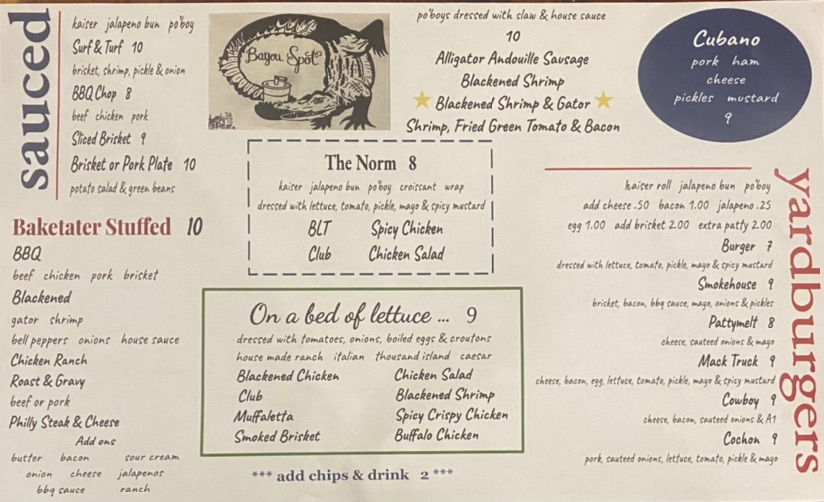 sauced
kaiser jalapeno bun po'boy
Surf & Turf 10
brisket, shrimp, pickle & onion
BBQ Chop 8
beef chicken pork
Sliced Brisket 9
Brisket or Pork Plate 10
potato salad & green beans
Baketater Stuffed 10
BBQ
beef chicken pork brisket
Blackened
gator shrimp
bell peppers onions house sauce
Chicken Ranch
Roast & Gravy
beef or pork
Philly Steak & Cheese
Add ons
butter bacon sour cream
onion cheese jalapenos
bbq sauce ranch
Bayou Spot
The Norm 8
kaiser jalapeno bun po'boy croissant wrap
dressed with lettuce, tomato, pickle, mayo & spicy mustard
BLT Spicy Chicken
Club Chicken Salad
On a bed of lettuce ... 9
dressed with tomatoes, onions, boiled eggs & croutons
house made ranch italian thousand island caesar
Blackened Chicken Chicken Salad
Club Blackened Shrimp
Muffaletta Spicy Crispy Chicken
Smoked Brisket Buffalo Chicken
*** add chips & drink 2 ***
po'boys dressed with slaw & house sauce
10
Alligator Andouille Sausage
Blackened Shrimp
Blackened Shrimp & Gator
Shrimp, Fried Green Tomato & Bacon
Cubano
pork ham
cheese
pickles mustard
9
yardburgers
kaiser roll jalapeno bun po'boy
add cheese .50 bacon 1.00 jalapeno .25
egg 1.00 add brisket 2.00 extra patty 2.00
Burger 7
dressed with lettuce, tomato, pickle, mayo & spicy mustard
Smokehouse 9
brisket, bacon, bbq sauce, mayo, onions & pickles
Pattymelt 8
cheese, sauteed onions & mayo
Mack Truck 9
cheese, bacon, egg, lettuce, tomato, pickle, mayo & spicy mustard
Cowboy 9
cheese, bacon, sauteed onions & A1
Cochon 9
pork, sauteed onions, lettuce, tomato, pickle & mayo